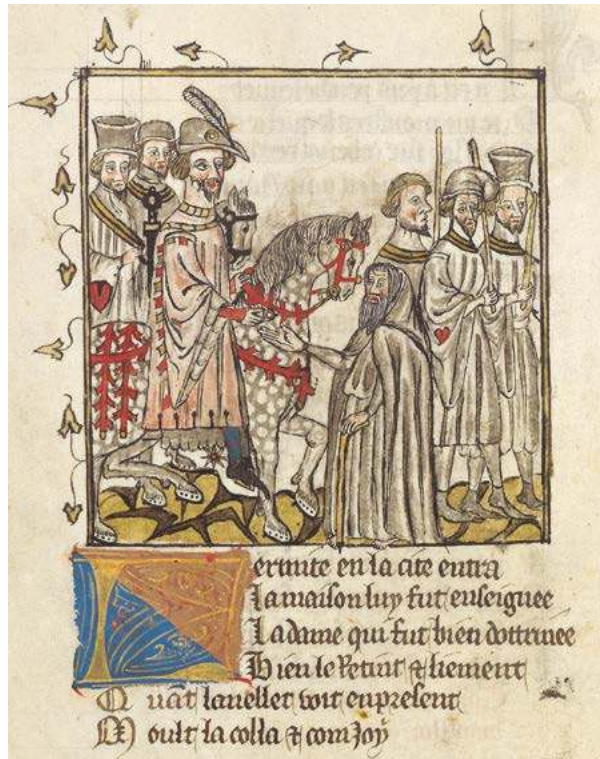 ermite en la cite entra
La maison luy fut enseignee
La dame qui fut bien dottrinee
Bien le Retint & liement
Quãt lanellet voit en present
Moult la colla & conJoy